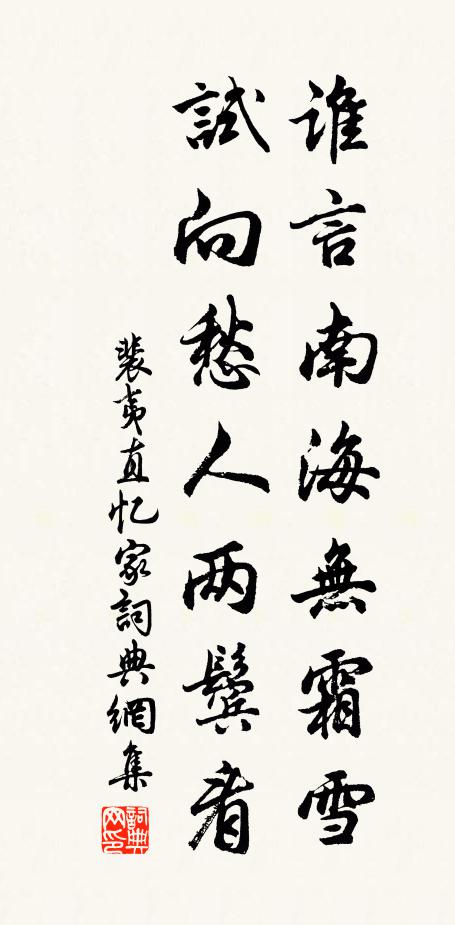 谁言南海無霜雪
試向愁人两鬓看
裴夷直忆家詞典網集
詞典
网印